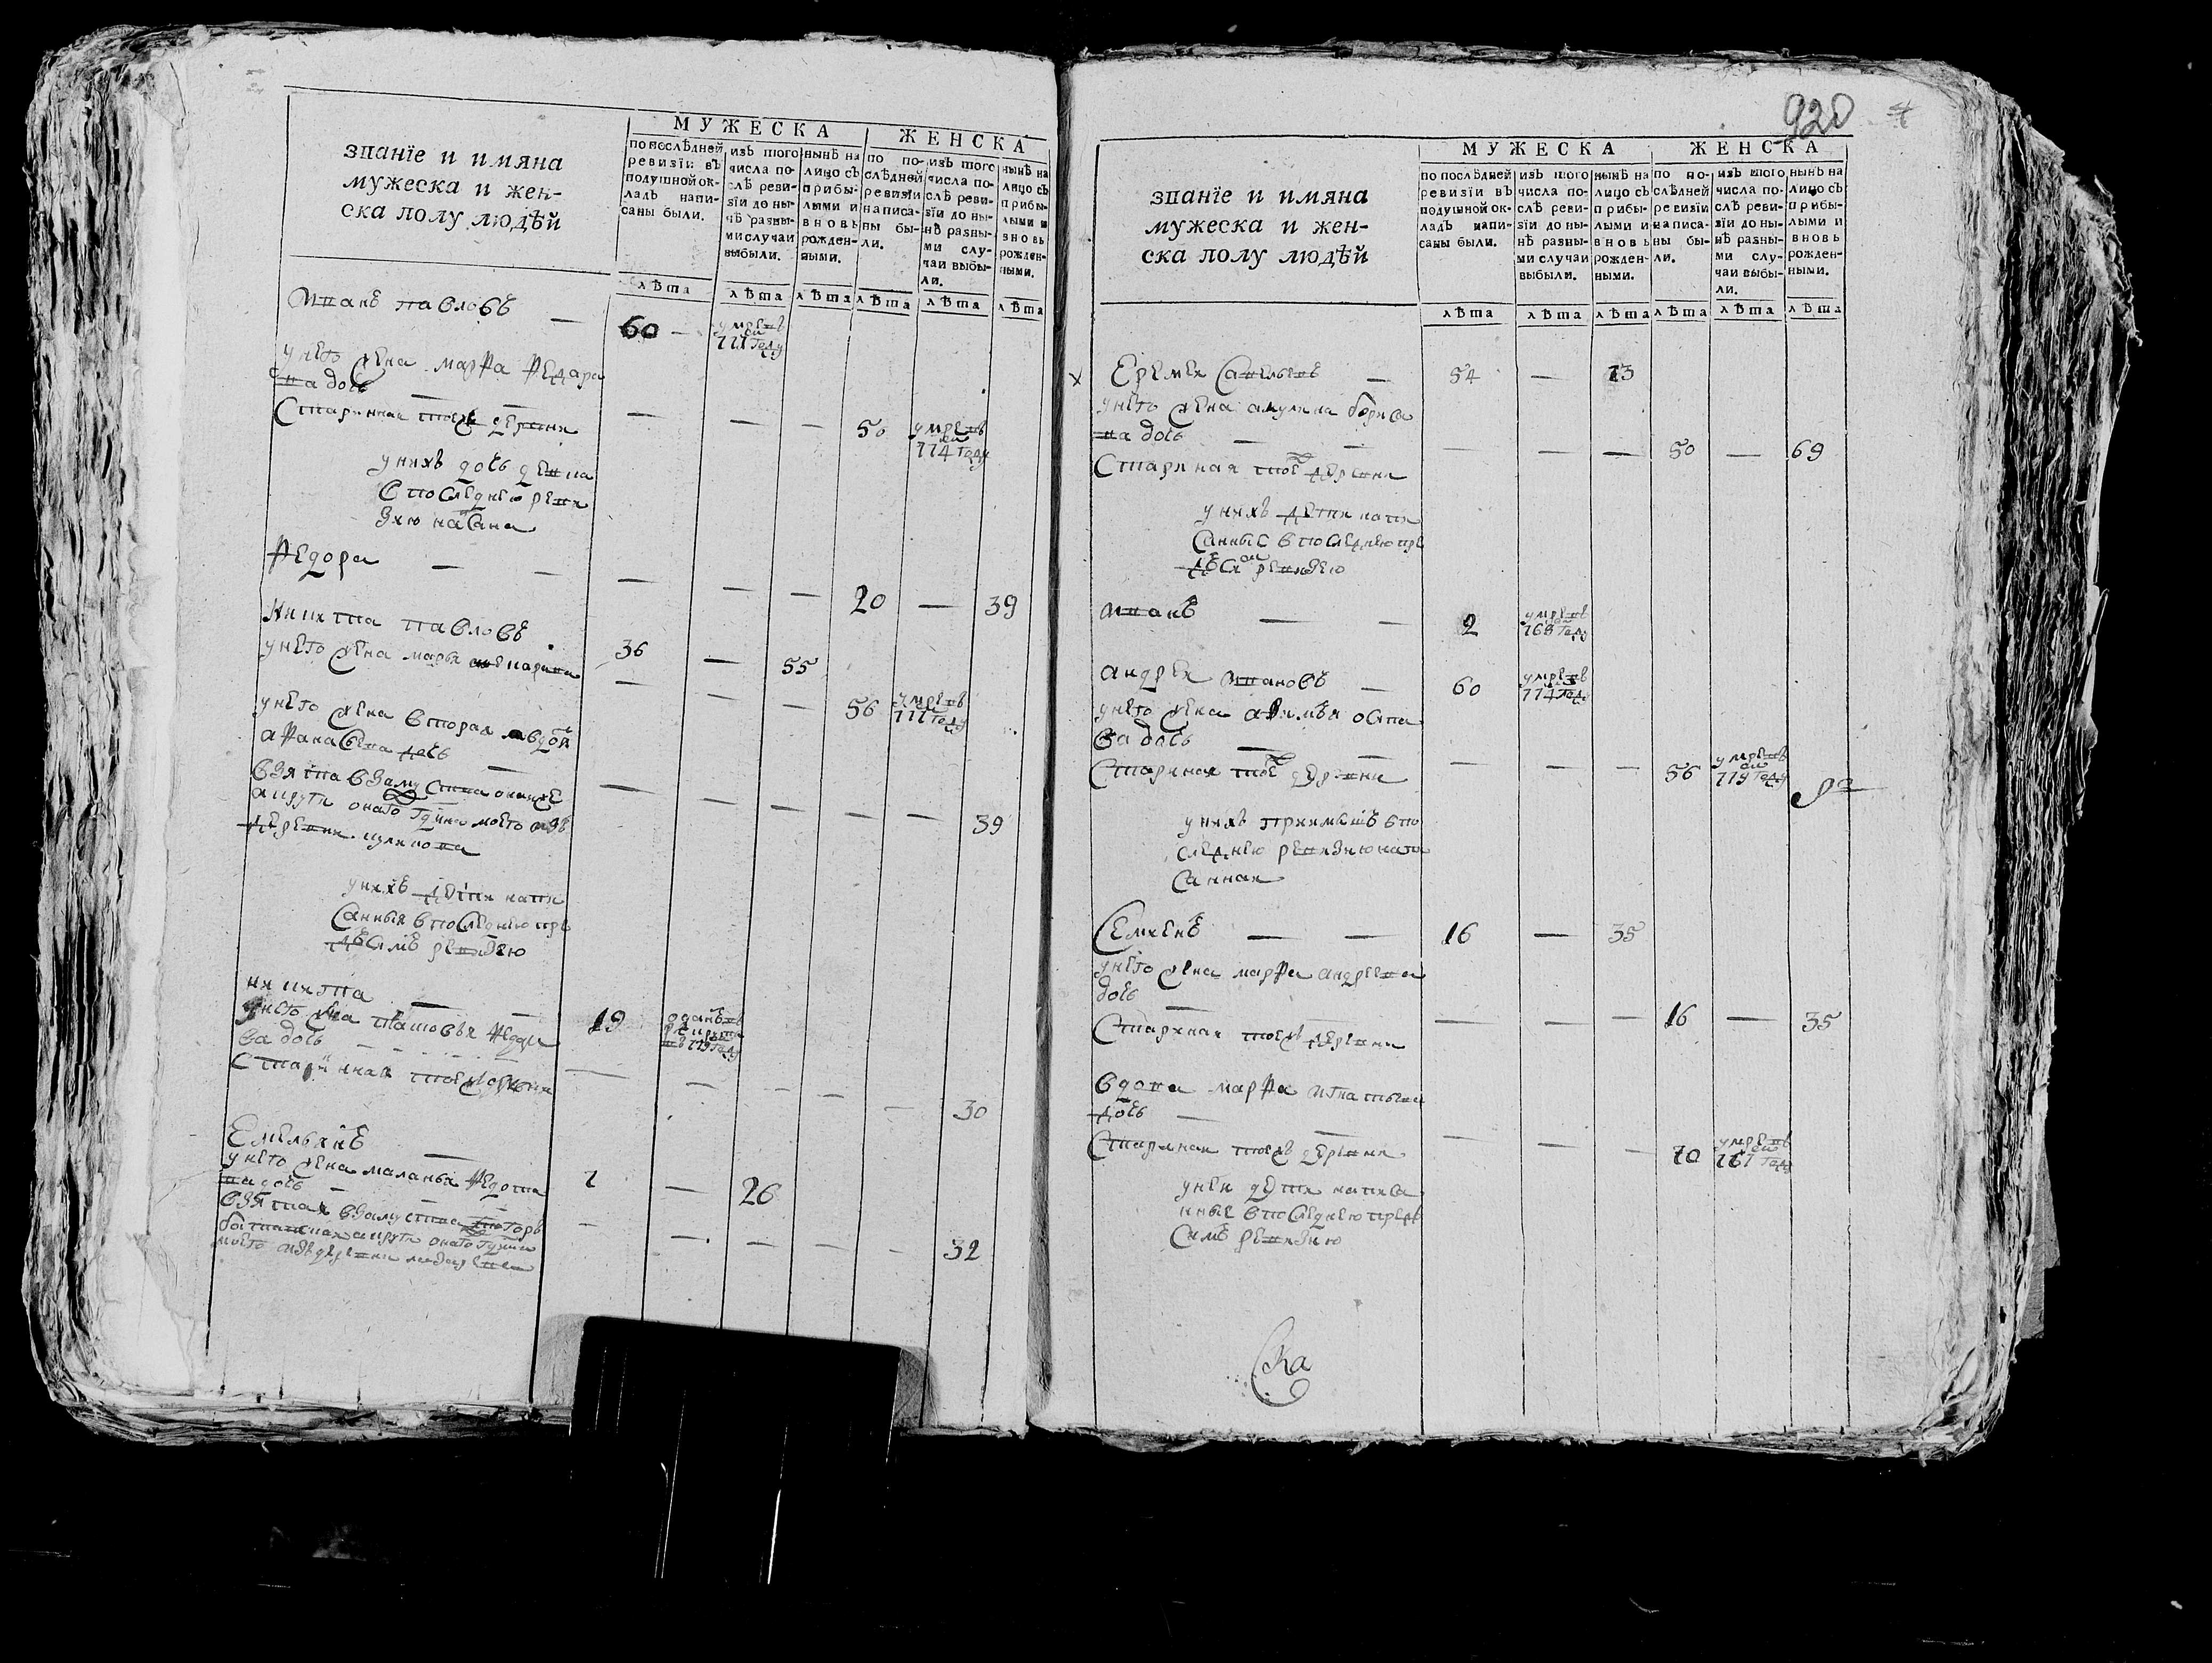 званїе и имяна
мужеска и жен-
ска полу людѣй
МУЖЕСКА
ЖЕНСКА
по послѣдней
ревизіи въ
подушной ок-
ладъ напи-
саны были.
изъ того
числа по-
слѣ реви-
зіи до ны-
нѣ разны-
ми случаи
выбыли.
нынѣ на
лицо съ
прибы-
лыми и
вновь
рожден-
ными.
по по-
слѣдней
ревизіи
написа-
ны бы-
ли.
изъ того
числа по-
слѣ реви-
зіи до ны-
нѣ разны-
ми слу-
чаи выбы-
ли.
нынѣ на
лицо съ
прибы-
лыми и
вновь
рожден-
ными.
лѣта лѣта лѣта лѣта лѣта лѣта
Иванъ павловъ — 60 — умре въ
771 году
у него жена марфа федоро
ва дочь — —
Старинная тоеж деревни — — — 50 умре въ
774 году
у них дочь девка
в последнею реви
зию написана
Федора — — — — — 20 — 39
Никита павловъ 36 — 55
у него жена марья — — — 56 умре въ
777 году
у него жена вторая авдотя
афанасьева дочь —
взята в замуство — — — — — 39
у них дети напи
санныя в последнею пре
д симъ ревизею
никита — — 19 отданъ в
рекруты
въ 779 году
у него жена федо
ва дочь
Старинная тоеж деревни — — — — — 30
Емельянъ — 7 — 26
у него жена маланья федото
ва дочь —
взятая в замуство — — — — — 32
920
званїе и имяна
мужеска и жен-
ска полу людѣй
МУЖЕСКА
ЖЕНСКА
по послѣдней
ревизіи въ
подушной ок-
ладъ напи-
саны были.
изъ того
числа по-
слѣ реви-
зіи до ны-
нѣ разны-
ми случаи
выбыли.
нынѣ на
лицо съ
прибы-
лыми и
вновь
рожден-
ными.
по по-
слѣдней
ревизіи
написа-
ны бы-
ли.
изъ того
числа по-
слѣ реви-
зіи до ны-
нѣ разны-
ми слу-
чаи выбы-
ли.
нынѣ на
лицо съ
прибы-
лыми и
вновь
рожден-
ными.
лѣта лѣта лѣта лѣта лѣта лѣта
х Еремей Савельевъ — 54 — 73
у него жена акулина бориса
ва дочь — —
Старинная тоеж деревни — — — 50 — 69
у них дети напи
санные в последнею пре
д сим ревизею
иванъ — — 2 умре въ
768 году
андрей Ивановъ — 60 умре въ
774 году
у него жена афимья осипа
ва дочь — —
Стариная тоеж деревни — — — 56 умре въ
779 году
у них приимышъ в по
следнею ревизию напи
санная
Семенъ — — 16 — 35
у него жена марфа андреева
дочь —
Стариная тоежъ деревни — — — 16 — 35
вдова марфа игнатьева
дочь — —
Стариная тоежъ деревни — — — 70 умре въ
767 году
у ней дети написа
нные в последнею предъ
симъ ревизию
Ска